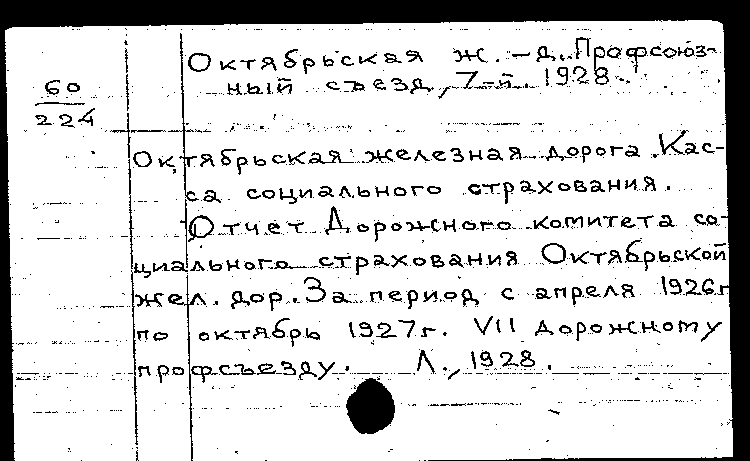 Октябрьская ж.-д. Профсоюз-
ный съезд, 7-й. 1928.
60
224
Октябрьская железная дорога. Кас-
са социального страхования.
Отчет Дорожного комитета со-
циального страхования Октябрьской
жел. дор. За период с апреля 1926г
по октябрь 1927г. VII дорожному
профсъезду. Л., 1928.